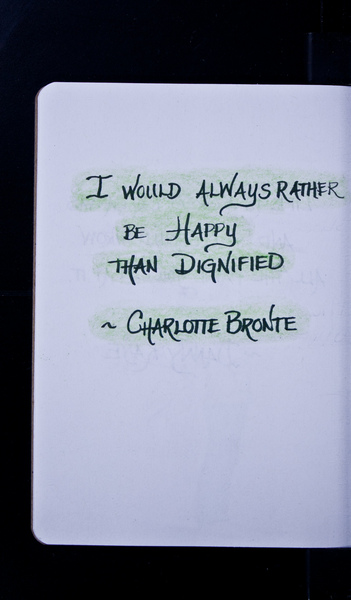 I WOULD ALWAYS RATHER
BE HAPPY
THAN DIGNIFIED
~ CHARLOTTE BRONTE